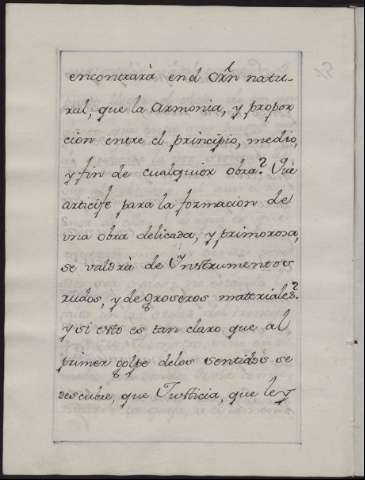 encontrarà en el Orn natu-
ral, que la armonia, y propor
cion entre el principio, medio,
y fin de cualquier obra? Vn
artifife para la formacion de
vna obra delicada, y primorosa,
se valdrà de Instrumentos
rudos, y de groseros materiales?
y si esto es tan claro que al
primer golpe delos sentidos se
descubre, que Justicia, que ley